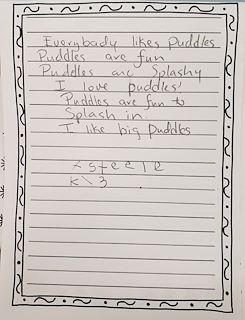 Everybady likes Puddles
Puddles are fun
Puddles are Splashy
I love puddles!
Puddles are fun to
Splash in.
I like big Puddles
steele
K\3